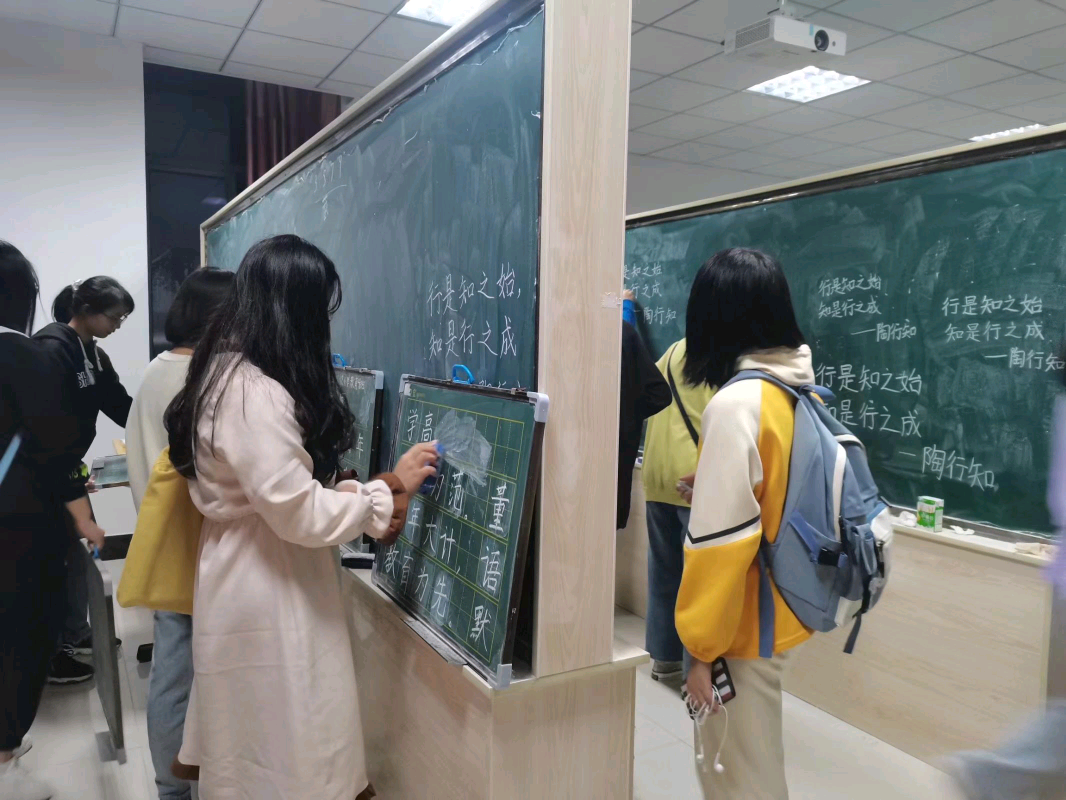 行是知之始,
知是行之成
学高
范,
年大计,
教育为先.
董
语
默
年
是知之始
行之成
陶行知
行是知之始
知是行之成
—陶行知
行是知之始
知是行之成
—陶行知
行是知之始
知是行之成
—陶行知